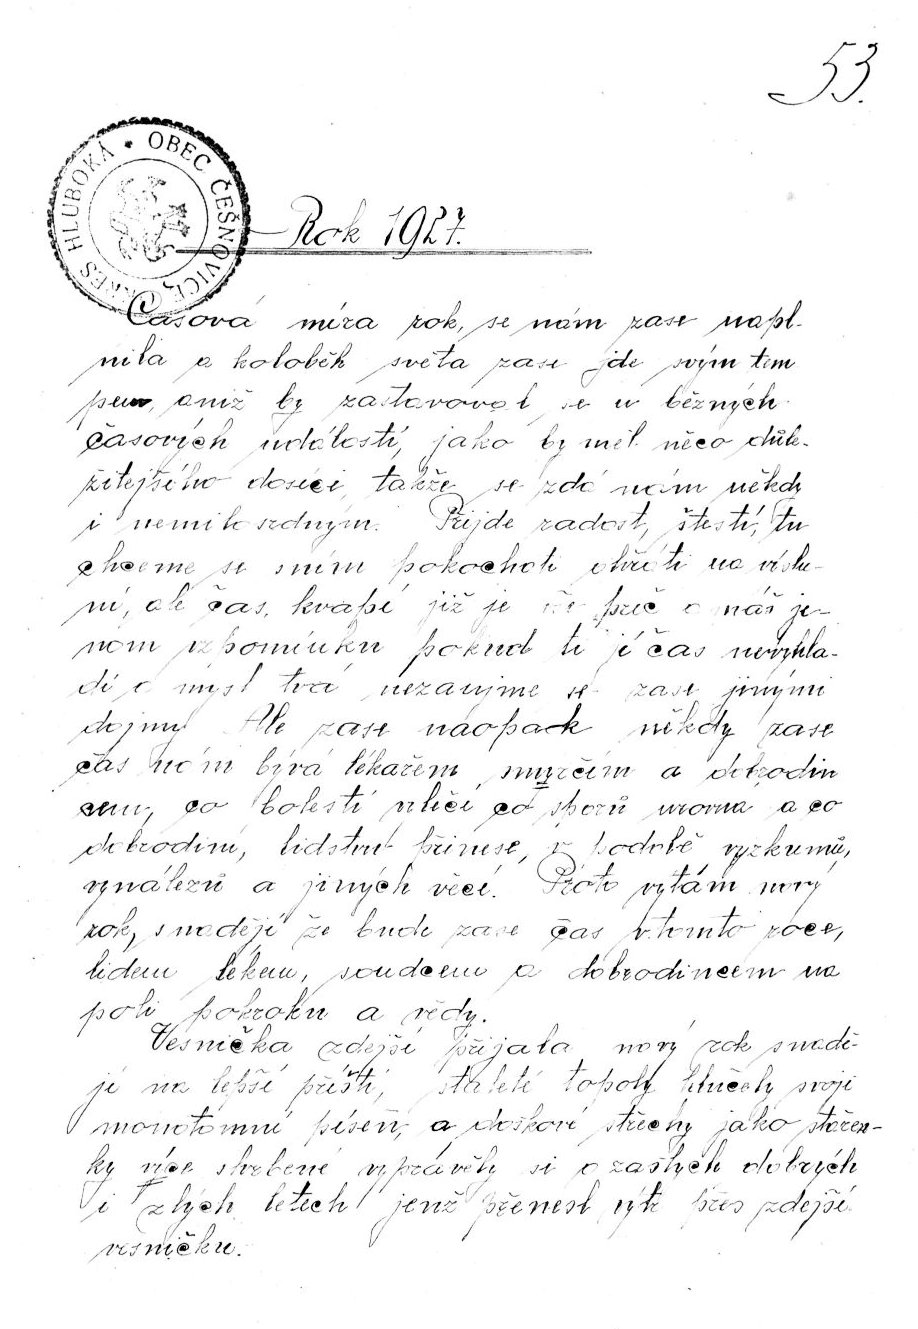 53.
OBEC ČEŠNOVICE OKRES HLUBOKÁ
Rok 1927.
Časová míra rok, se nám zase napl-
nila a koloběh světa zase jde svým tem
pem, aniž by zastavoval se u běžných
časových událostí, jako by měl něco důle-
žitejšího dosíci, takže se zdá nám někdy
i nemilosrdným. Přijde radost, štestí, tu
chceme se sním pokochati ohřáti na vislu-
ní, ale čas, kvapí již je pryč a náš je-
nom vzpomínku pokud ti jí čas nevyhla-
dí a mysl tvá nezaujme se zase jinými
dojmy. Ale zase naopack někdy zase
čas nám bývá lékařem smrčím a dobrodin
cem, co bolestí vyléčí co sporů urovná a co
dobrodiní, lidstvu přinese, v podobě vyzkumů,
vynálezů a jiných věcí. Proto vytám nový
rok, s nadějí že bude zase čas v tomto roce,
lidem lékem, soudcem a dobrodincem na
poli pokroku a vědy.
Vesnička zdejší přijala nový rok s nadě-
jí na lepší příští, staleté topoly hlučely svoji
monotómní píseň, a doškové střechy jako stařen-
ky více shrbené vyprávěly si o zašlych dobrých
i zlých letech jenž přenesl výtr přes zdejší
vesničku.